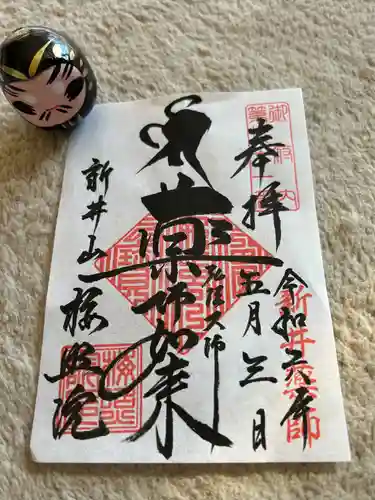 奉拝
令和六年
五月三日
薬師如来
弘法大師
新井山
梅照院
新井薬師
梅照院